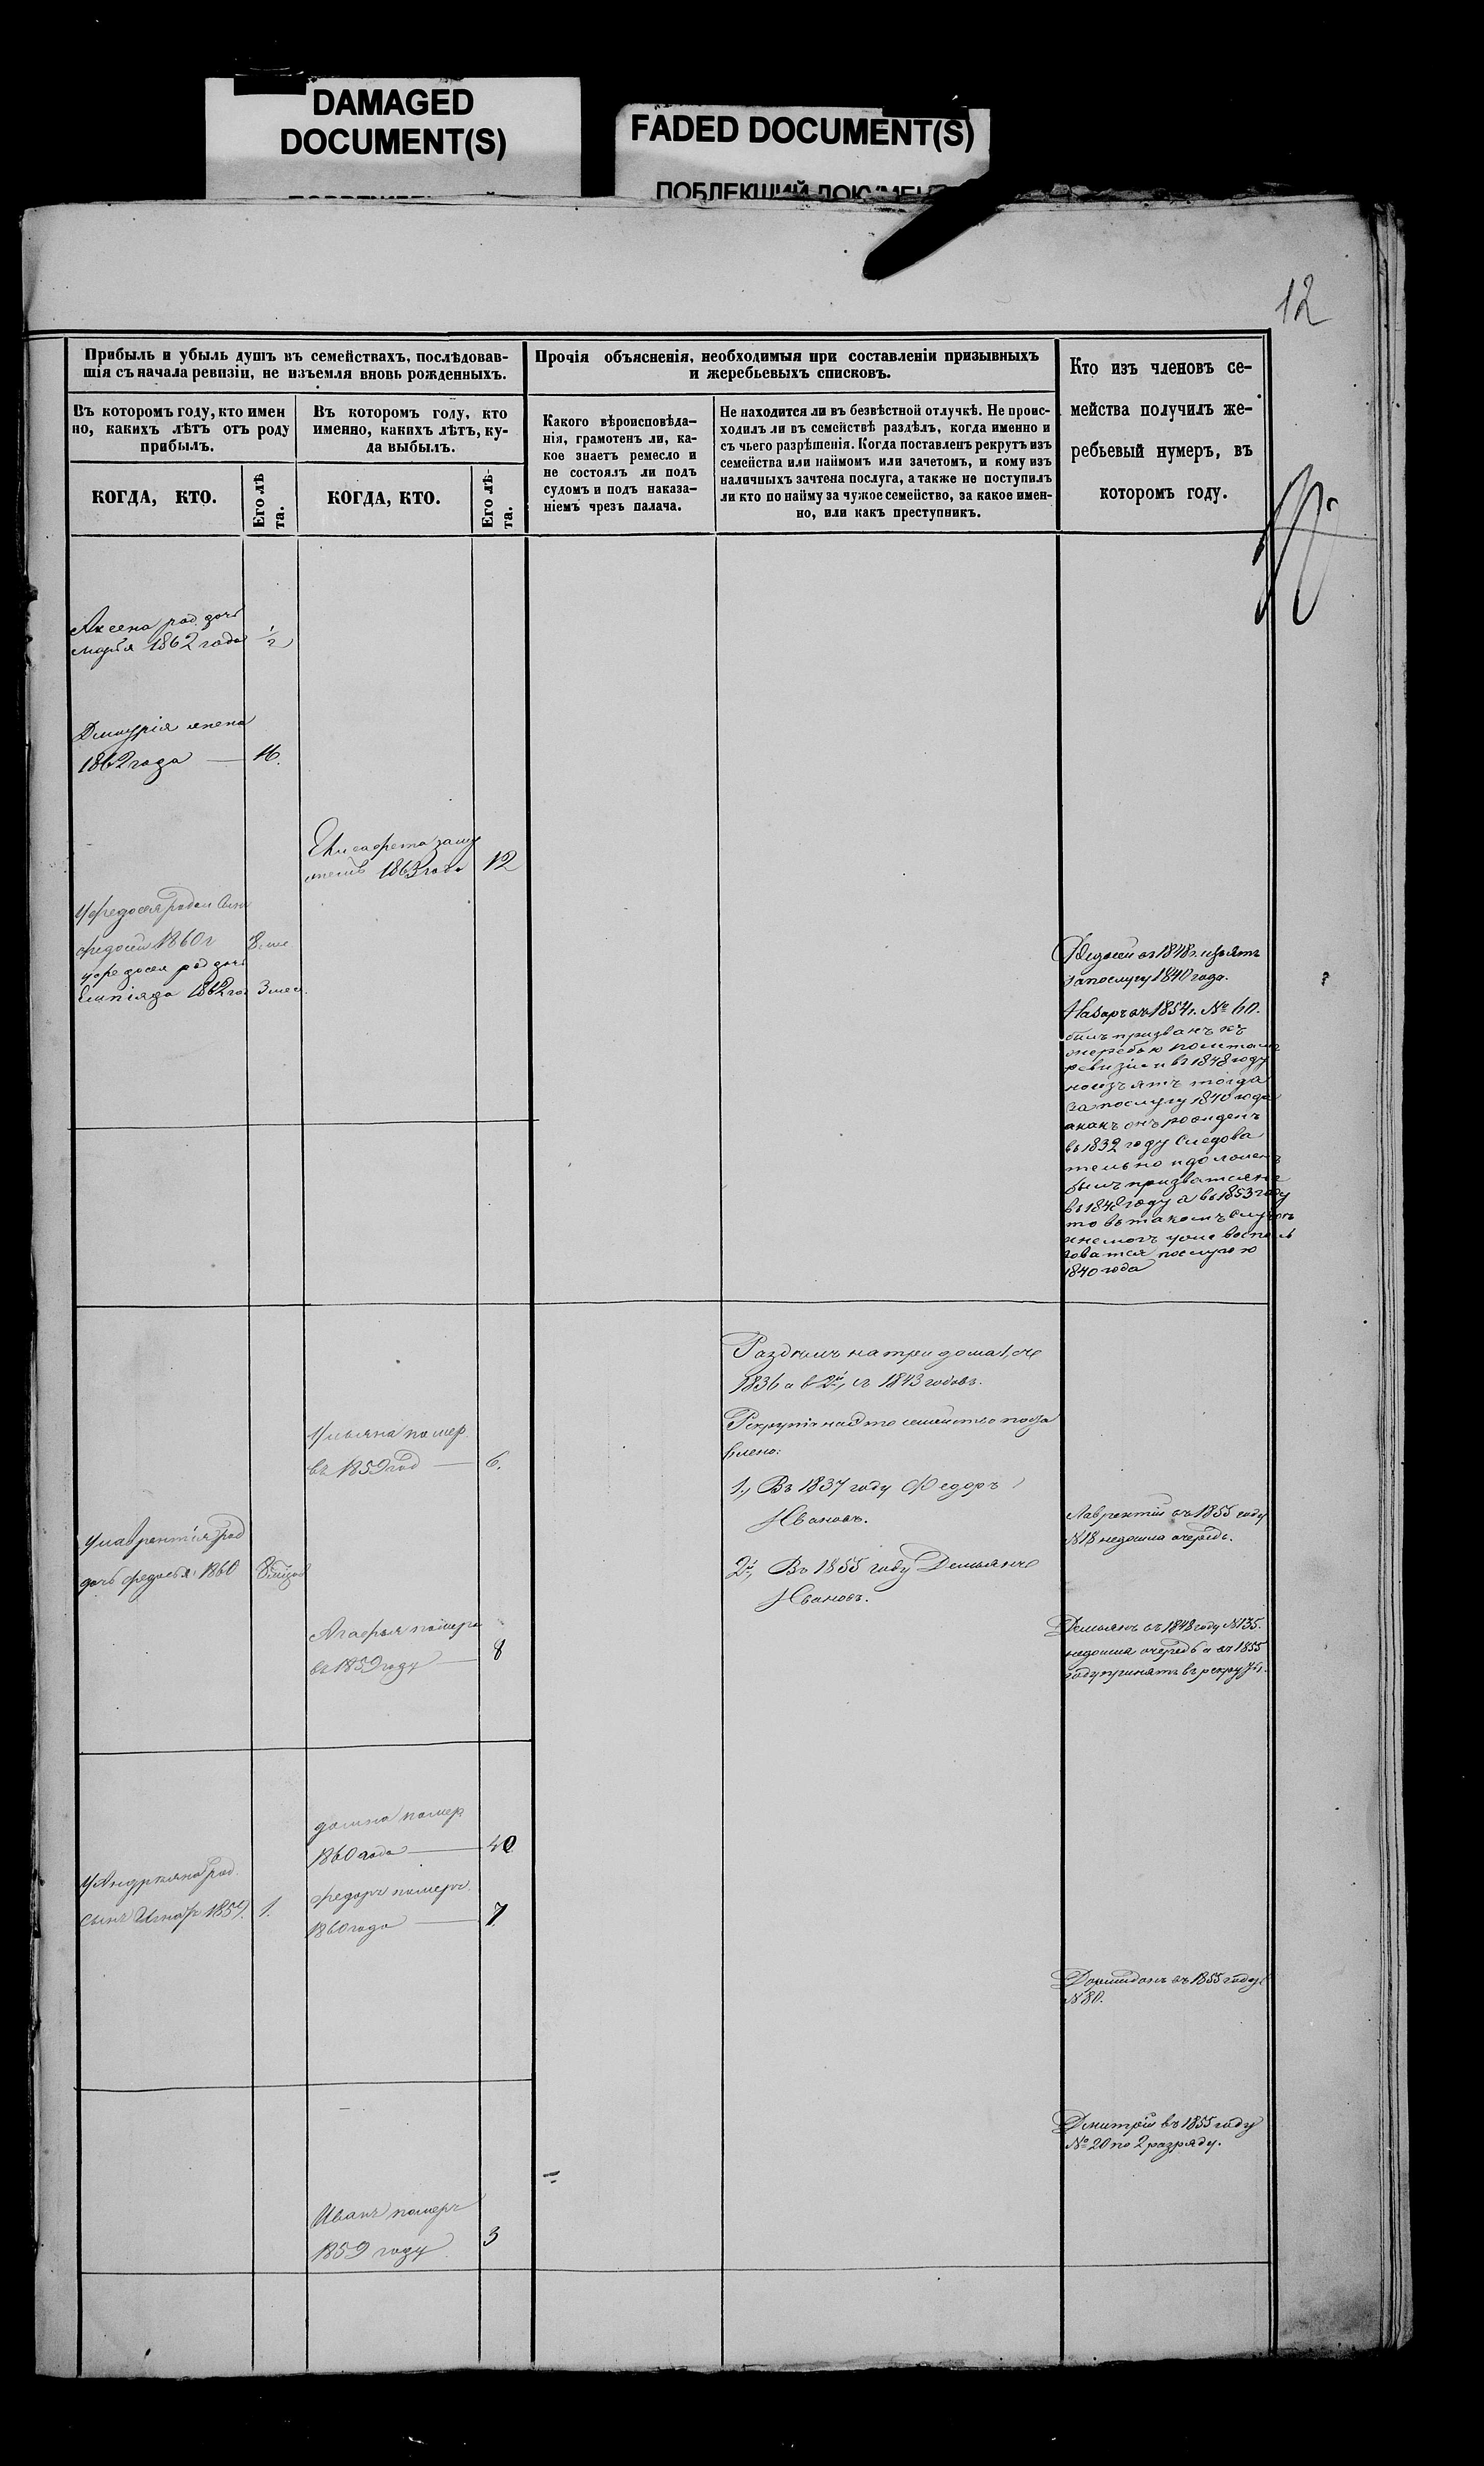 DAMAGED
DOCUMENT(S)
FADED DOCUMENT(S)
ПОБЛЕКШИЙ ДОКУМЕН
12
Прибыль и убыль душъ въ семействахъ, послѣдовав-
шія съ начала ревизіи, не изъемля вновь рожденныхъ.
Въ которомъ году, кто имен
но, какихъ лѣтъ отъ роду
прибылъ.
Въ которомъ году, кто
именно, какихъ лѣтъ, ку-
да выбылъ.
КОГДА, КТО.
Его лѣ
та.
КОГДА, КТО.
Его лѣ-
та.
Прочія объясненія, необходимыя при составленіи призывныхъ
и жеребьевыхъ списковъ.
Какого вѣроисповѣда-
нія, грамотенъ ли, ка-
кое знаетъ ремесло и
не состоялъ ли подъ
судомъ и подъ наказа-
ніемъ чрезъ палача.
Не находится ли въ безвѣстной отлучкѣ. Не проис-
ходилъ ли въ семействѣ раздѣлъ, когда именно и
съ чьего разрѣшенія. Когда поставленъ рекрутъ изъ
семейства или наймомъ или зачетомъ, и кому изъ
наличныхъ зачтена послуга, а также не поступилъ
ли кто по найму за чужое семейство, за какое имен-
но, или какъ преступникъ.
Кто изъ членовъ се-
мейства получилъ же-
ребьевый нумеръ, въ
которомъ году.
Аксена род. дочь
марья 1862 года 1/2
Дмитрія жена
1862 года — 16.
Елисавета заму
1863 года 12
у федосея родил
федосей 1860 г 8 ме
у федосея род дочь
1862 год 3 меся.
Федосей въ 1848 г. изъятъ
за послугу 1840 года.
Назаръ въ 1854 г. № 60.
былъ призванъ къ
жеребью
ревизіи и въ 1848 году
но изъятъ тогда
за послугу 1840 года
а какъ онъ рожденъ
въ 1832 году Следова
тельно и долженъ
былъ призватся не
въ 1848 году а въ 1853 году
то въ такомъ случаѣ
и не могъ уже восполь
зоватся послугою
1840 года
Раздѣлъ на три дома 1, съ
1836 а 2й, съ 1843 годовъ.
Рекрутъ на это семейство поста
влено:
1, Въ 1837 году Федоръ
Ивановъ.
2й, Въ 1855 году Демьянъ
Ивановъ.
Ульяна помер
въ 1859 год — 6.
у лаврентія род
дочь федосья 1860 8
Агафья померла
въ 1859 году — 8
Лаврентій въ 1855 году
№ 18 недошла очередь.
Демьянъ въ 1848 году № 135.
недошла очередь а въ 1855
году принятъ въ рекруты.
домна помер
1860 года — 40
федоръ померъ
1860 года — 7
у Андріяна род.
сынъ 1859. 1.
Дормидонъ въ 1855 году
№ 80.
Дмитрій въ 1855 году
№ 20 по 2 разряду.
Иванъ померъ
1859 году 3